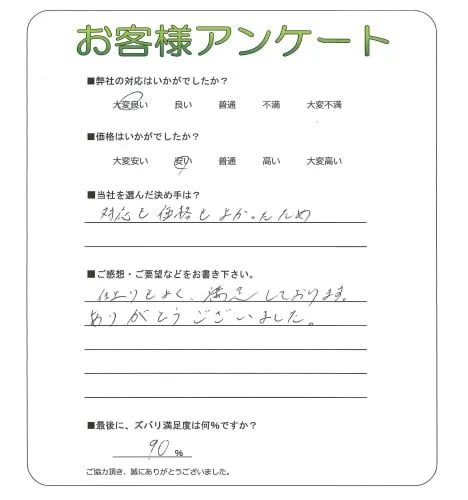 お客様アンケート
■弊社の対応はいかがでしたか?
大変良い 良い 普通 不満 大変不満
■価格はいかがでしたか?
大変安い 安い 普通 高い 大変高い
■当社を選んだ決め手は?
対応も価格もよかったため
■ご感想・ご要望などをお書き下さい。
仕上りもよく、満足しております。
ありがとうございました。
■最後に、ズバリ満足度は何%ですか?
90 %
ご協力頂き、誠にありがとうございました。